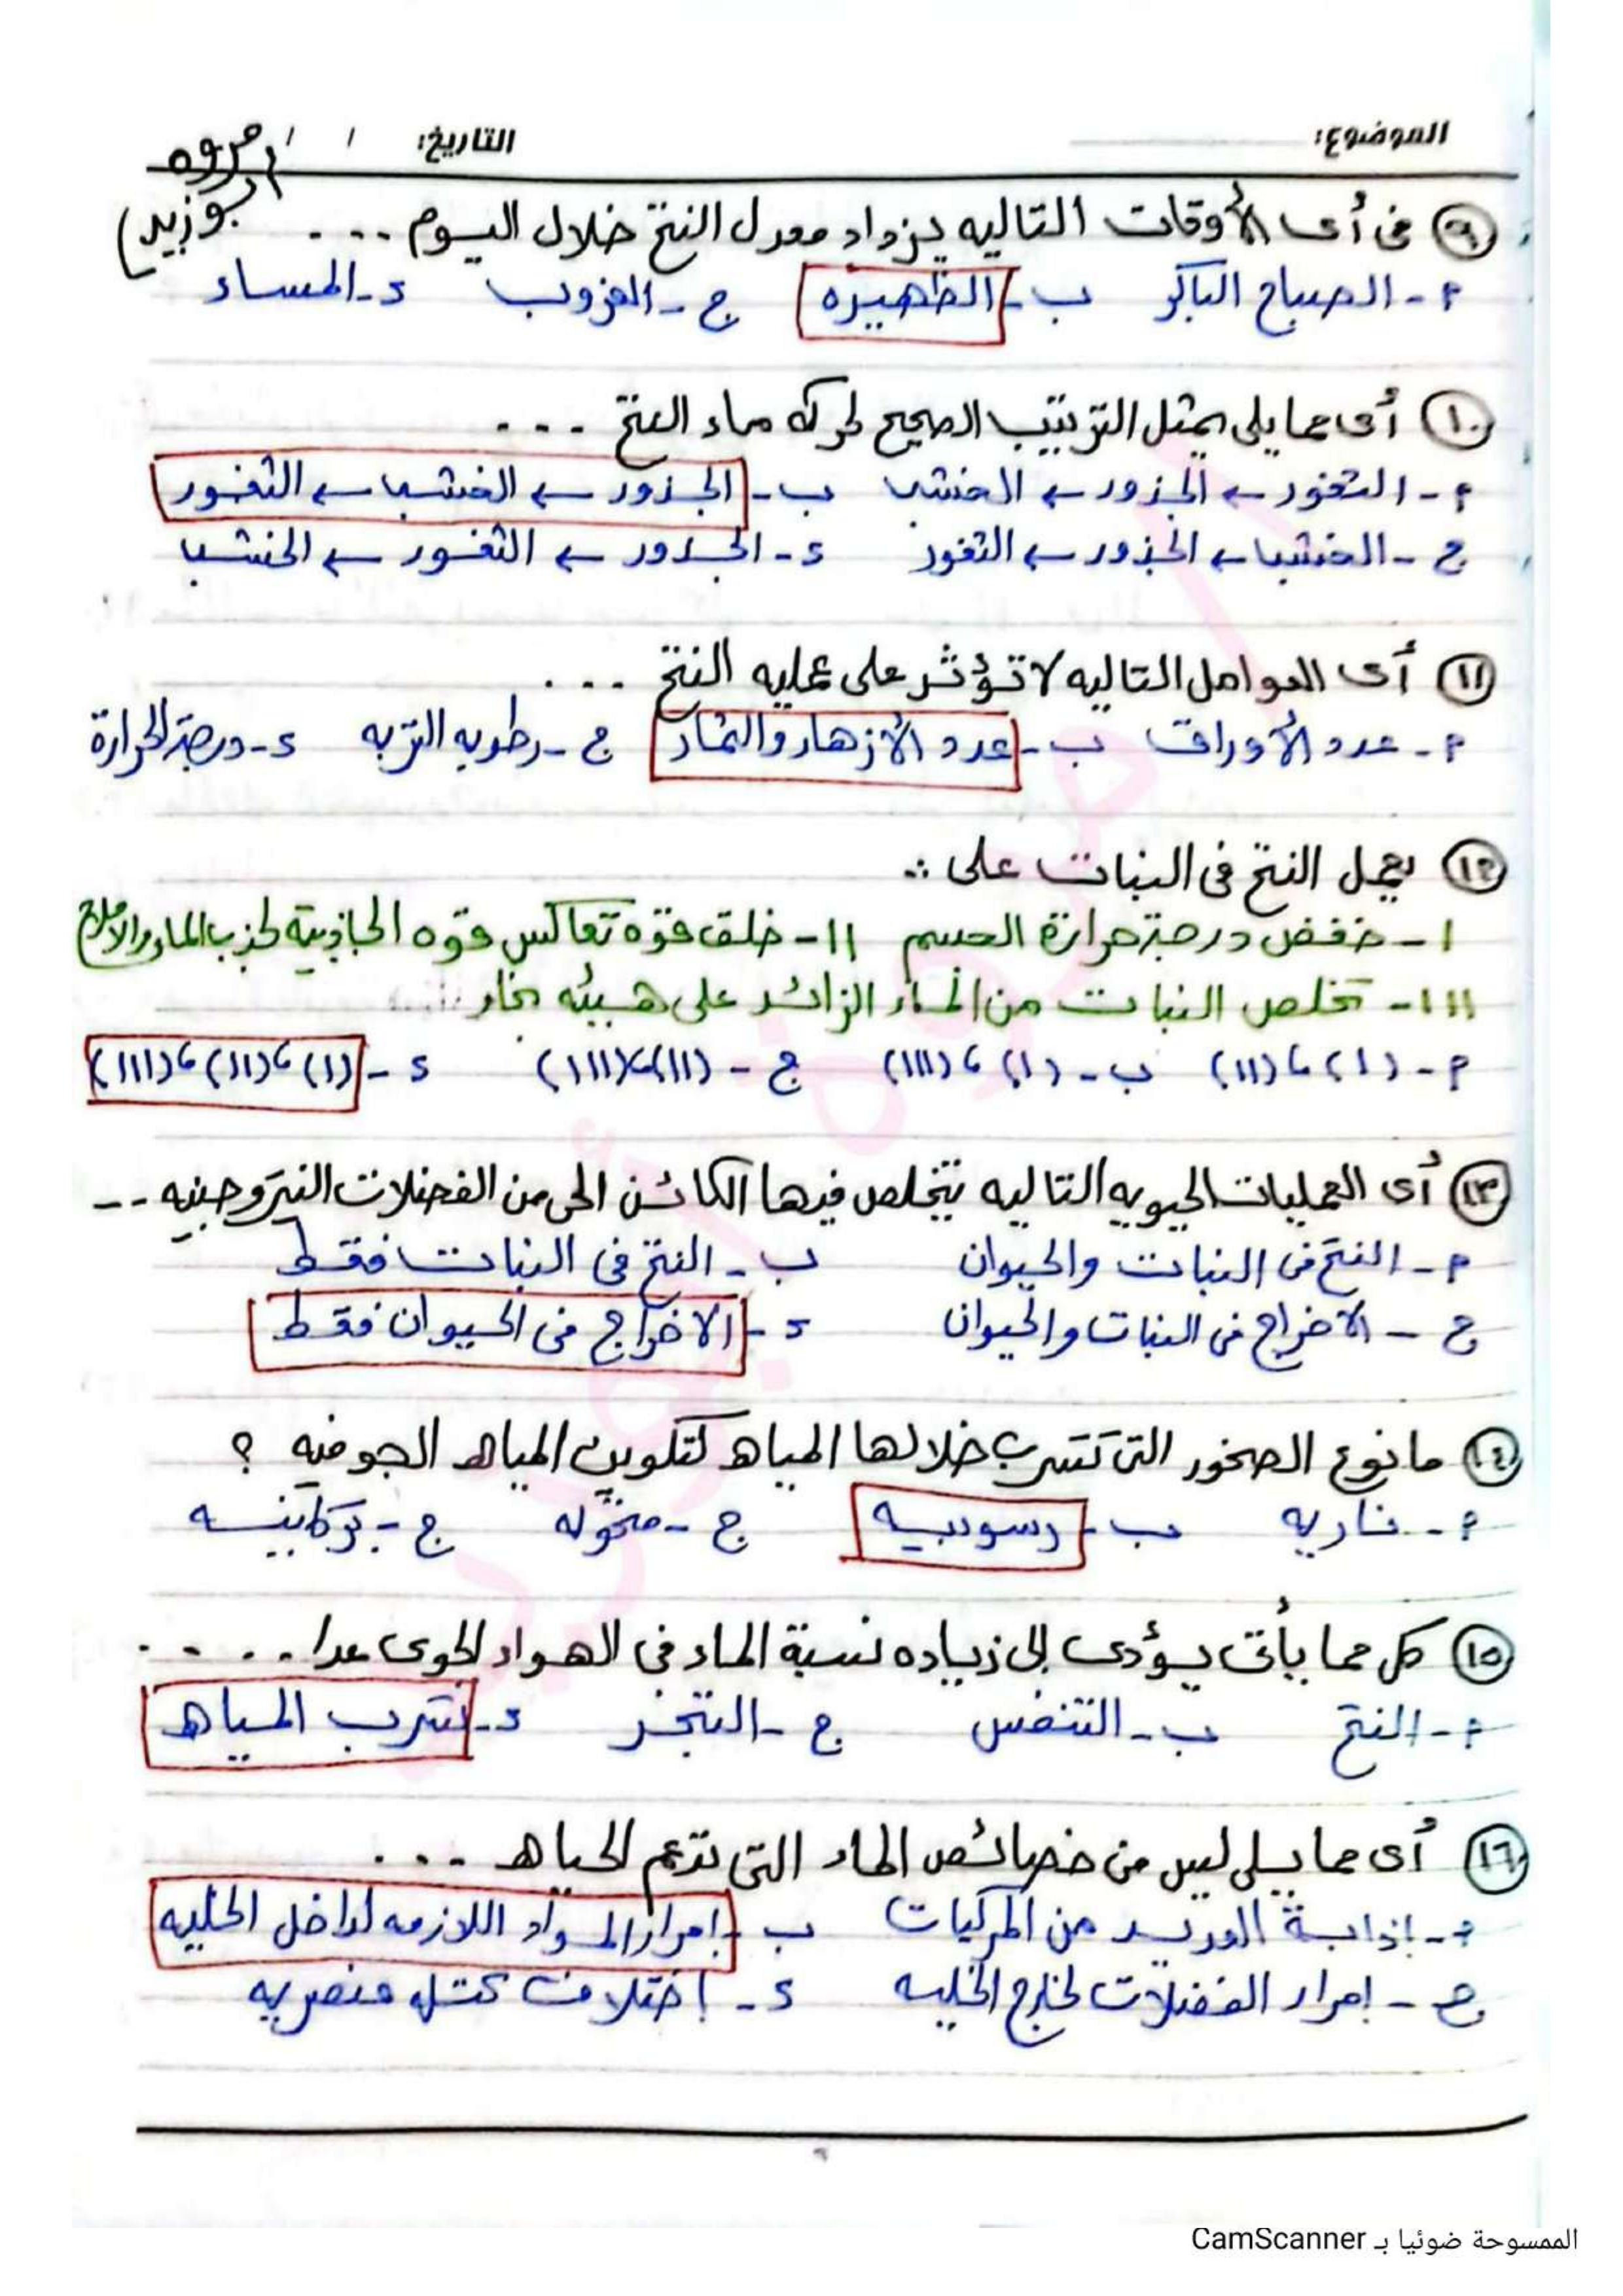 الموضوع: التاريخ: / / مروه
ابوزيد
٩ فى أى الأوقات التاليه يزداد معدل النتح خلال اليوم ....
أ - الصباح الباكر ب - الظهيره ج - الغروب د - المساء
١٠ أى مما يلى يمثل الترتيب الصحيح لحركه ماء النتح ...
أ - الثغور ← الجذور ← الخشب ب - الجذور ← الخشب ← الثغور
ج - الخشب ← الجذور ← الثغور د - الجذور ← الثغور ← الخشب
١١ أى العوامل التاليه لا تؤثر على عمليه النتح ...
أ - عدد الأوراق ب - عدد الأزهار والثمار ج - رطوبه التربه د - درجة الحرارة
١٢ يعمل النتح فى النبات على :.
I - خفض درجة حرارة الجسم II - خلق قوة تعاكس قوه الجاذبية لجذب الماء والأملاح
III - تخلص النبات من الماء الزائد على هيئه بخار ...
أ - (I) ، (II) ب - (I) ، (III) ج - (II) ، (III) د - (I) ، (II) ، (III)
١٣ أى العمليات الحيويه التاليه يتخلص فيها الكائن الحى من الفضلات النيتروجينيه --
أ - النتح فى النبات والحيوان ب - النتح فى النبات فقط
ج - الاخراج فى النبات والحيوان د - الاخراج فى الحيوان فقط
١٤ ما نوع الصخور التى تتسرب خلالها المياه لتكوين المياه الجوفيه ؟
أ - ناريه ب - رسوبيه ج - متحوله ج - بركانيه
١٥ كل مما يأتى يؤدى إلى زياده نسبة الماء فى الهواء الجوى عدا ....
أ - النتح ب - التنفس ج - التبخر د - تسرب المياه
١٦ أى مما يلى ليس من خصائص الماء التى تدعم الحياه ...
أ - إذابة العديد من المركبات ب - إمرار المواد اللازمه لداخل الخليه
ج - إمرار الفضلات لخارج الخليه د - إختلاف كتله عنصريه
الممسوحة ضوئيا بـ CamScanner